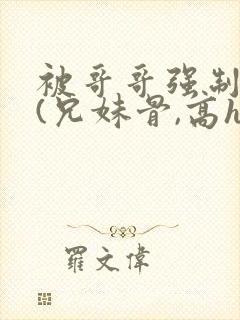 被哥哥强制
(兄妹骨,高h
羅文偉